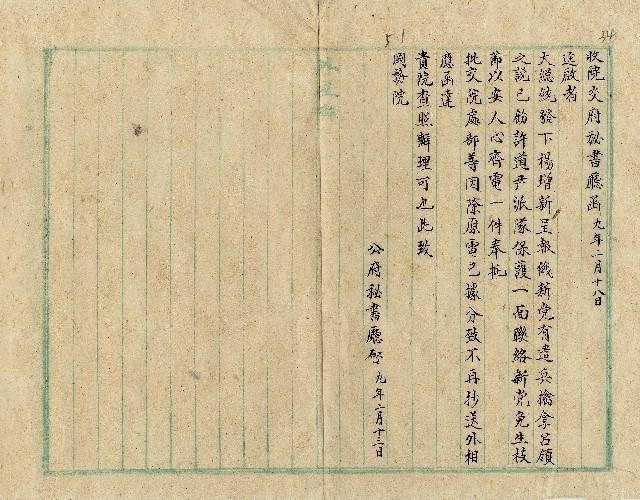 34
51
收院交府祕書廳函 九年二月十八日
逕啟者
大總統發下楊增新呈報俄新党有遣兵擒拿呂領
之說已飭許道尹派隊保護一面聯絡新党免生枝
節以安人心齊電一件奉
批交院處部等因除原電已據分致不再抄送外相
應函達
貴院查照辦理可也此致
國務院
公府秘書廳啓 九年二月十三日